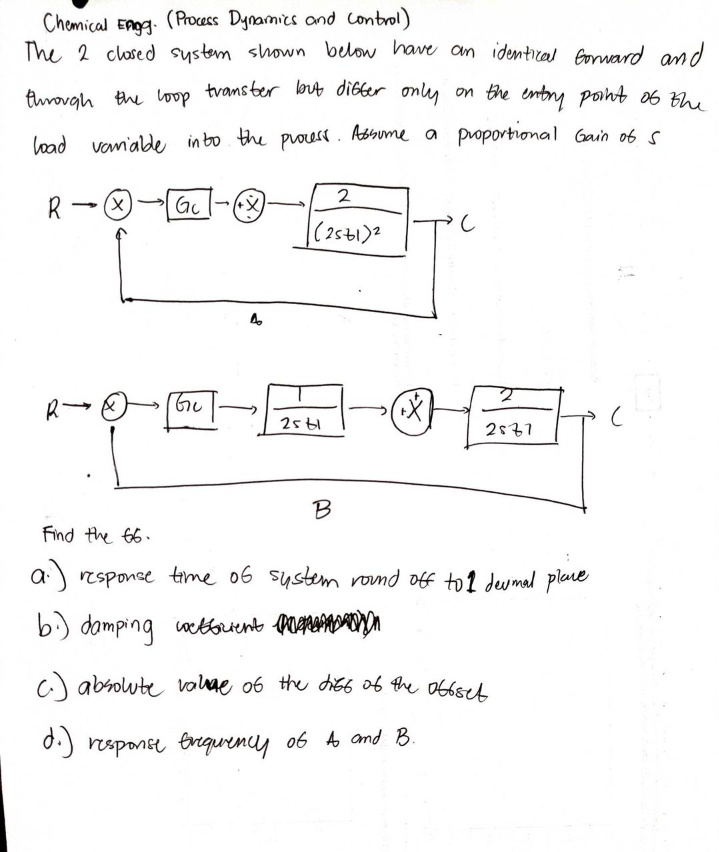 Chemical Engg. (Process Dynamics and Control)
The 2 closed system shown below have an identical forward and
through the loop transfer but differ only on the entry point of the
load variable into the process. Assume a proportional Gain of 5
R X Gc +X 2 C
(2s+1)²
A
R X Gc 1 + +X 2 C
2s+1 2s+1
B
Find the ff.
a.) response time of system round off to 1 decimal place
b.) damping coefficient
c.) absolute value of the diff of the offset
d.) response frequency of A and B.